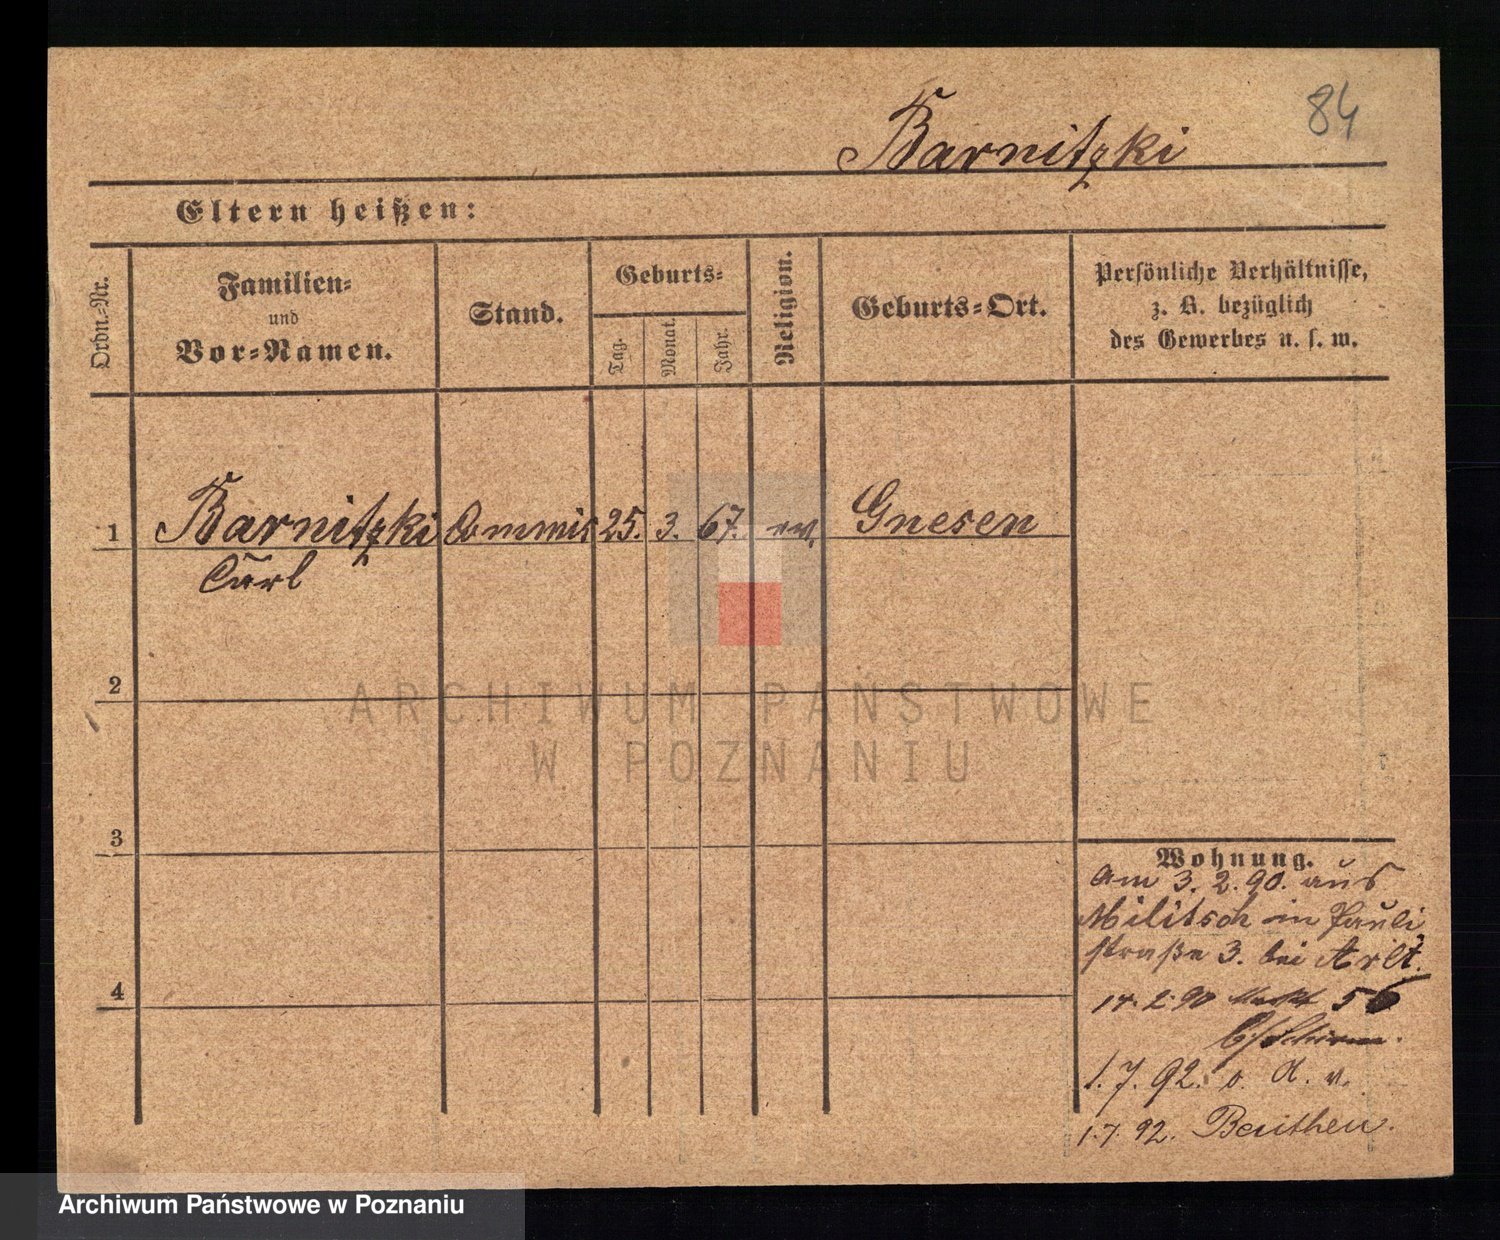 84
Barnitzki
Eltern heißen:
Ordn.-Nr.
Familien-
und
Vor-Namen.
Stand.
Geburts-
Tag.
Monat.
Jahr.
Religion.
Geburts-Ort.
Persönliche Verhältnisse,
z. B. bezüglich
des Gewerbes u. s. w.
1 Barnitzki Commis 25. 3. 67. ev. Gnesen
Carl
2
3
4
Wohnung.
Am 3. 2. 90. aus
Militsch in Pauli
straße 3. bei Arlt.
14. 2. 90 Markt 56
b/ Schirm.
1. 7. 92. o. A. v.
1. 7. 92. Beuthen.
ARCHIWUM PAŃSTWOWE
W POZNANIU
Archiwum Państwowe w Poznaniu